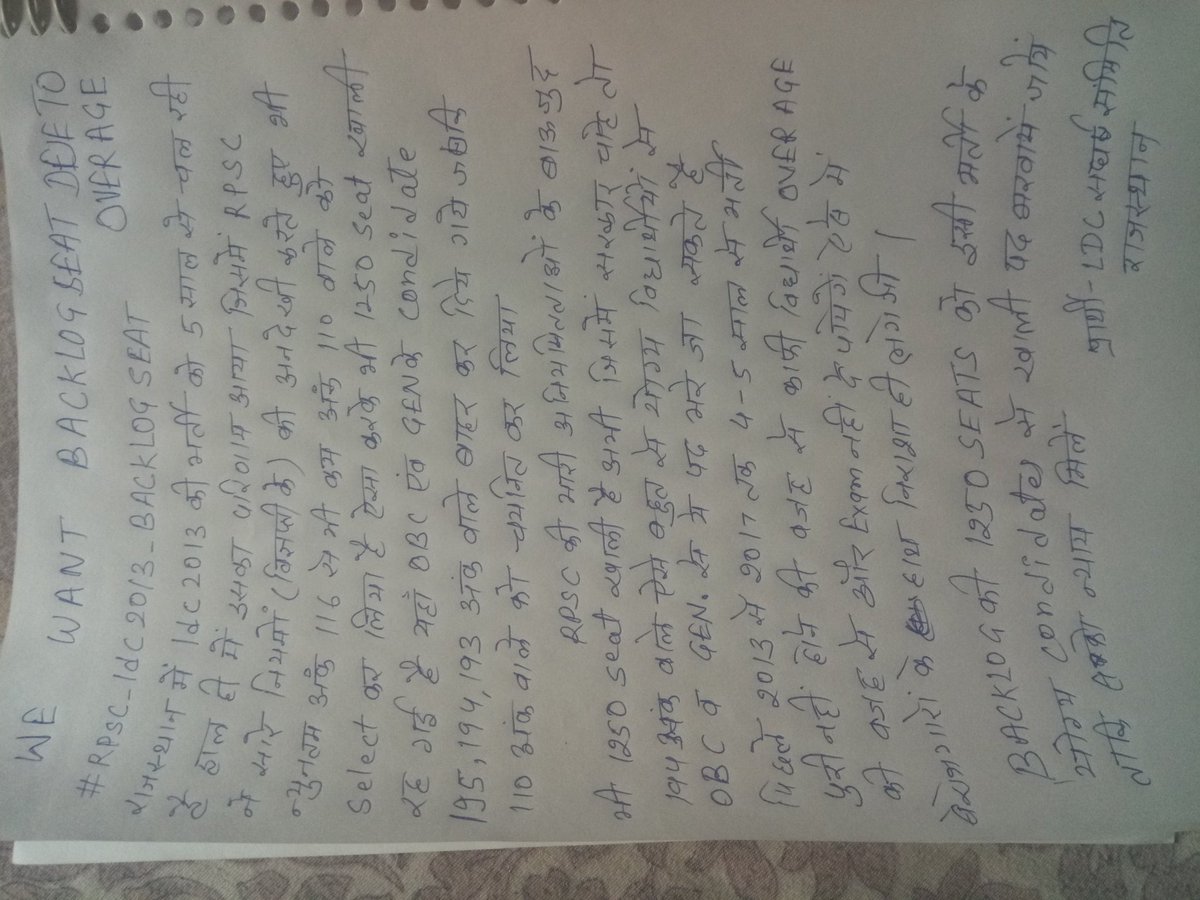 WE WANT BACKLOG SEAT DUE TO
OVERAGE
#RPSC-ldc2013_BACKLOG SEAT
राजस्थान में ldc 2013 की भर्ती को 5 साल से चल रही
है हाल ही में उसका परिणाम आया जिसमें RPSC
ने सारे नियमों (विज्ञप्ति के) की अनदेखी करते हुए भी
न्युनतम अंक 116 से भी कम अंक 110 वाले को
Select कर लिया है ऐसा करके भी 1250 seat खाली
रह गई है यहाँ OBC एंव GENके Condidate
195,194,193 अंक वाले बाहर कर दिये गये जबकि
110 अंक वाले को चयनित कर लिया
RPSC की भारी अनियमितताओं के बावजुद
भी 1250 seat खाली है अभी जिसमें सरकार चाहे तो
194 अंक वाले ऐसे बहुत से योग्य विद्यार्थियों से
OBC व GEN. से ये पद भरे जा सकते है
पिछले 2013 से 2017 तक 4-5 साल से भर्ती
पुरी नही होने की वजह से काफी विद्यार्थी OVERAGE
की वजह से और Exam नही दे पायेगें ऐसे में
बेरोजगारों के हाथ निराशा ही लगेगी |
BACKLOG की 1250 SEATS को इसी भर्ती के
योग्य Condidate से खाली पद भरवायें जाये
ताकि सबको न्याय मिलें
प्रार्थी-LDC संघर्ष समिति
राजस्थान